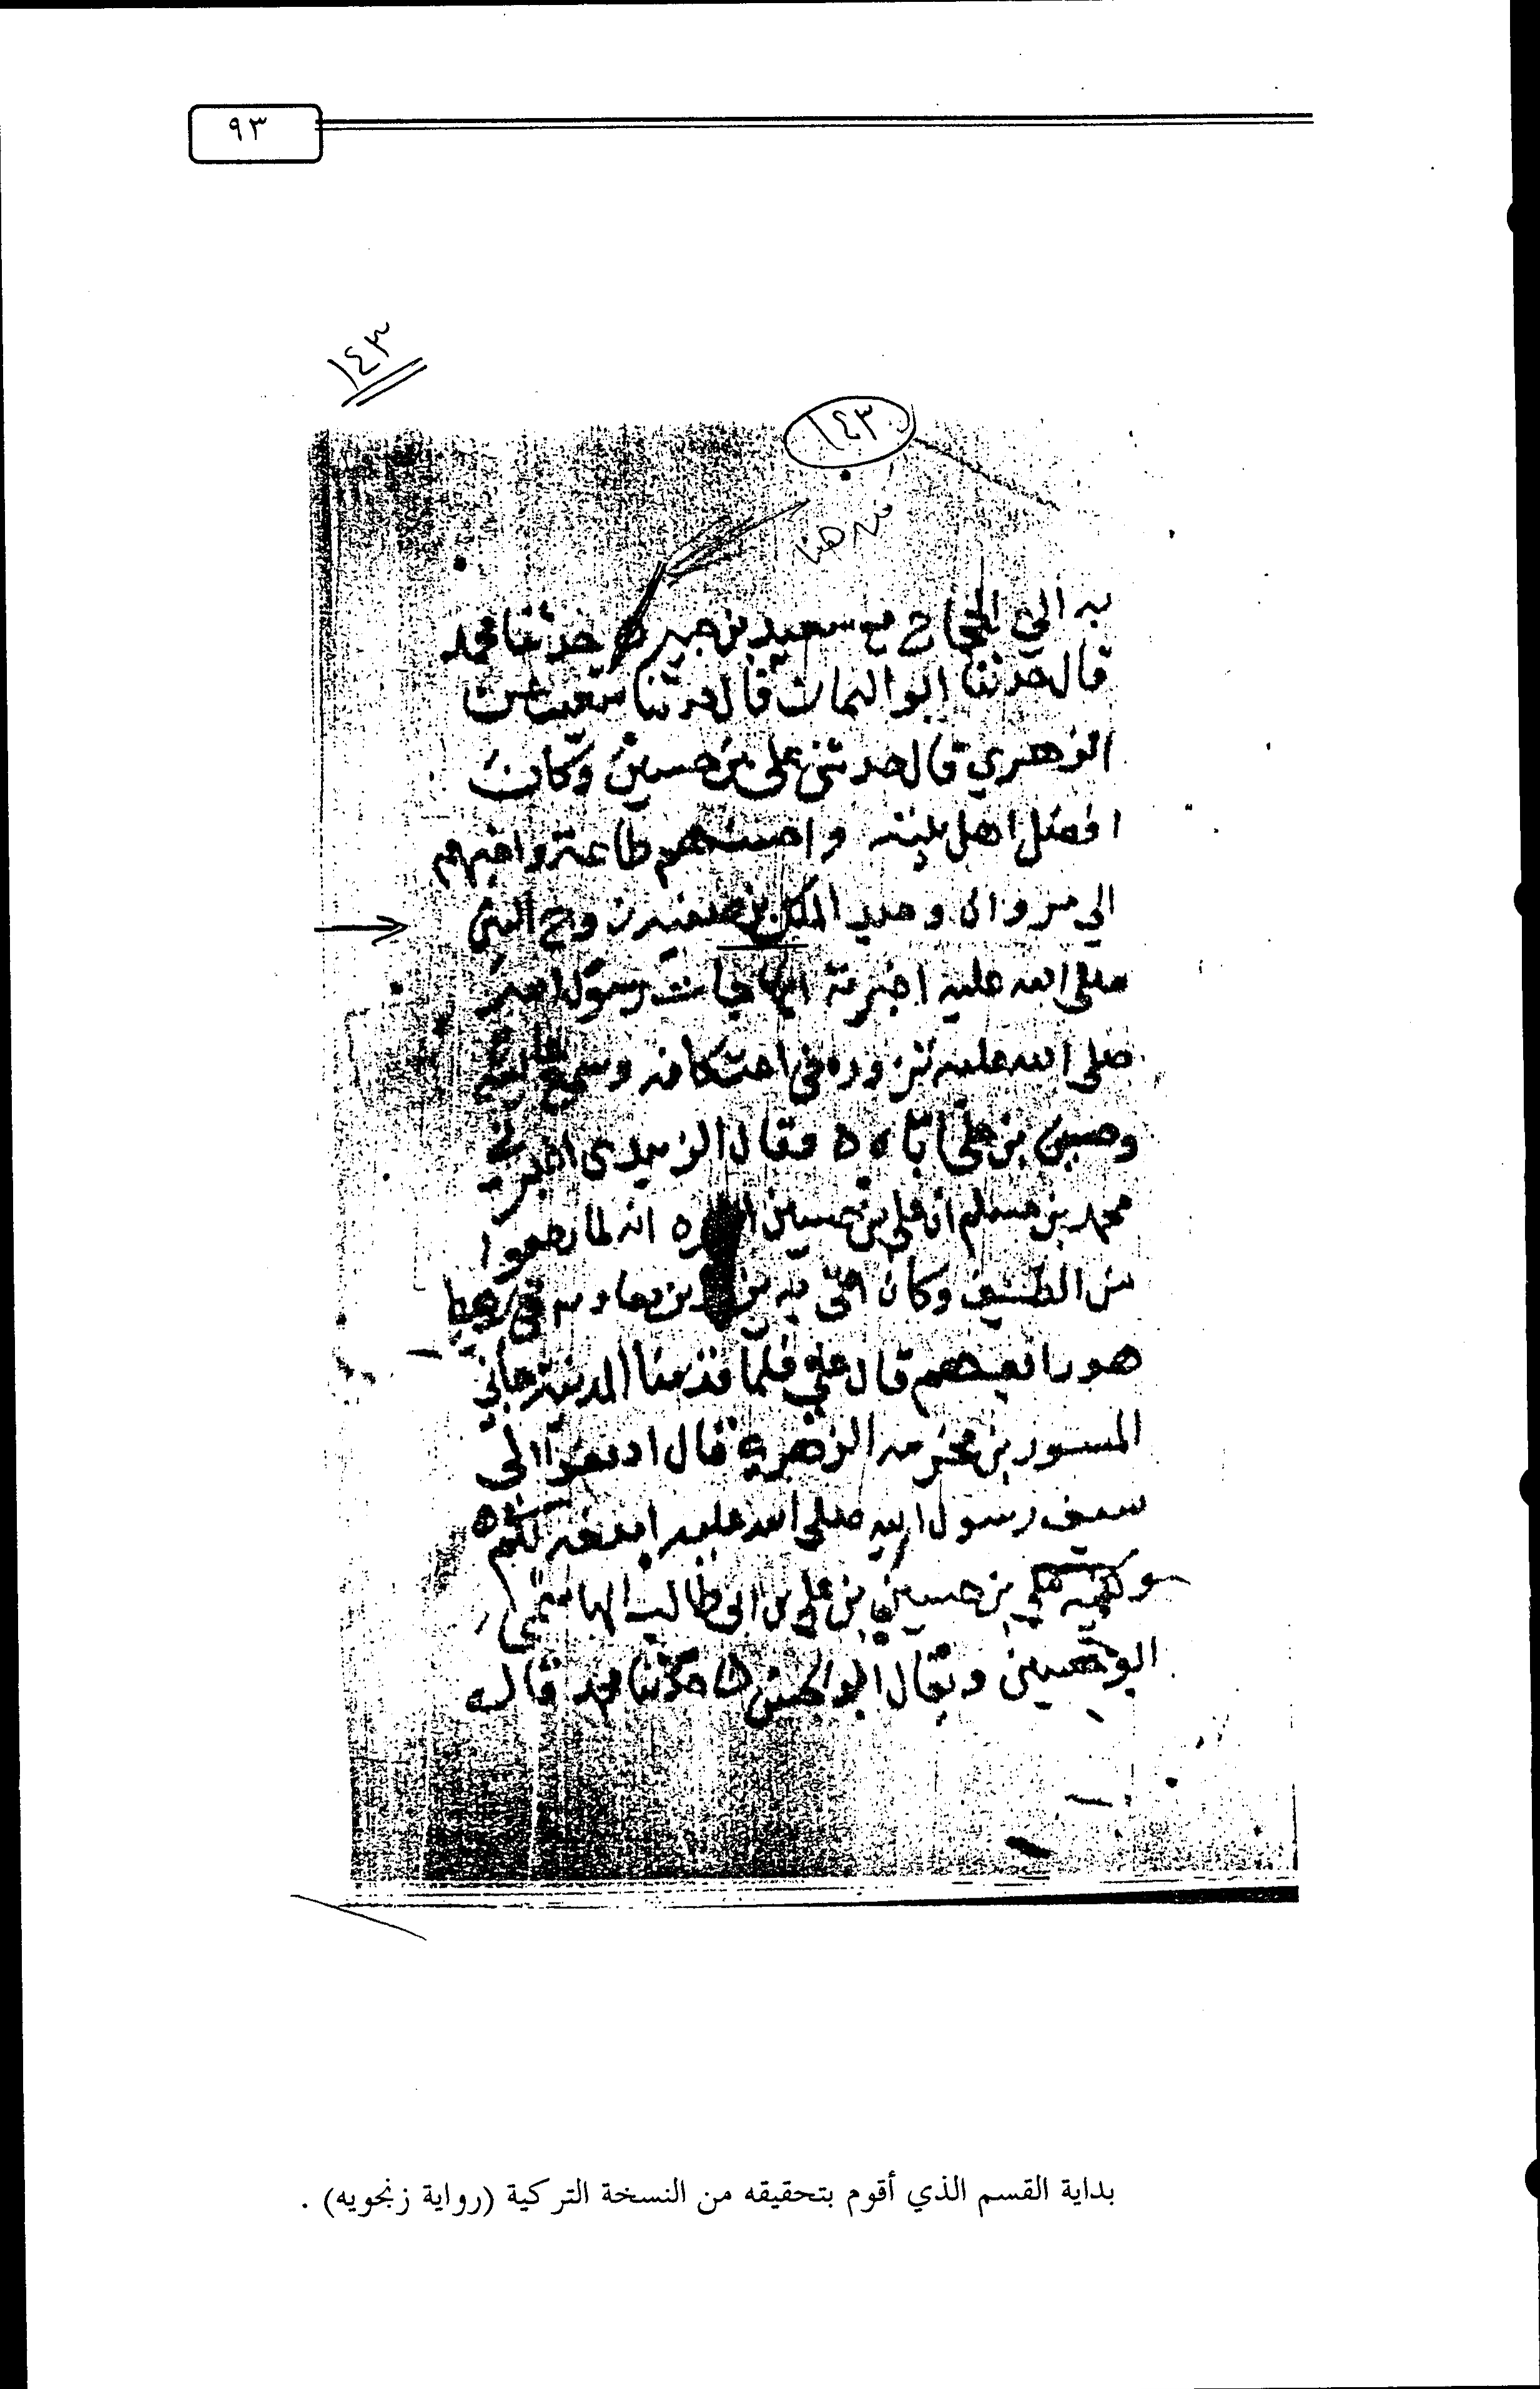 ٩٣
١٤٣
١٤٣
من هنا
به الى الحجاج مع سعيد بن جبير ه حدثنا محمد
قال حدثنا ابو اليمان قال حدثنا شعيب عن
الزهري قال حدثني علي بن حسين وكان
افضل اهل بيته واحسنهم طاعة واحبهم
الي مروان وعبد الملك بن صفيه زوج النبي
صلى الله عليه اخبرته انها جات رسول الله
صلى الله عليه تزوره في اعتكافه وسمع
وحسين بن علي اباه ه وقال الزبيدي اخبرني
محمد بن مسلم ان علي بن حسين اخبره انه لما رجعوا
من الطف وكان اتى به يزيد بن معاويه في رهط
هو رابعهم قال علي فلما قدمنا المدينة جاني
المسور بن مخرمه الزهري قال ادفعوا الى
سيف رسول الله صلى الله عليه امنعه لكم ه
وكنيه علي بن حسين بن علي بن ابى طالب الهاشمي
ابو حسين ويقال ابو الحسن ه حدثنا محمد قال
بداية القسم الذي أقوم بتحقيقه من النسخة التركية (رواية زنجويه) .